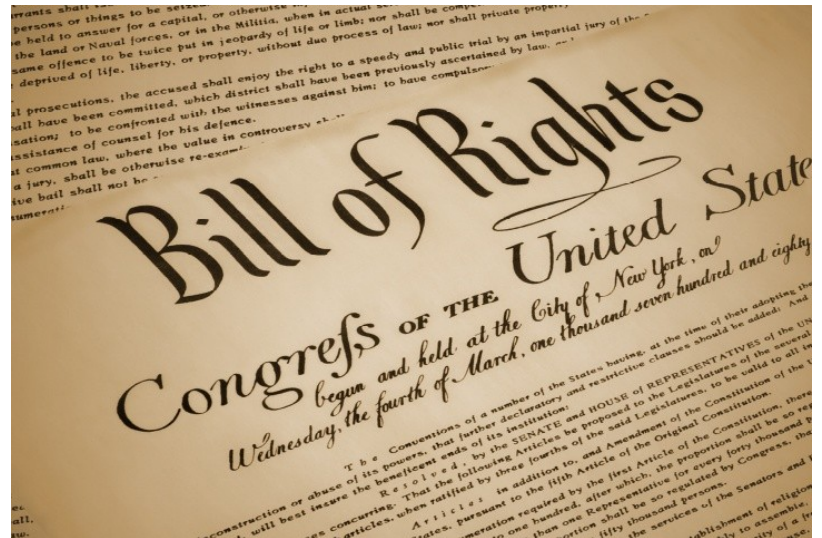 rrants shall
persons or things to be seized
be held to answer for a capital, or otherwise
the land or Naval forces, or in the Militia, when in actual
same offence to be twice put in jeopardy of life or limb; nor shall be
deprived of life, liberty, or property, without due process of law; nor shall private property
l prosecutions, the accused shall enjoy the right to a speedy and public trial by an impartial jury of the
all have been committed, which district shall have been previously ascertained by law, and
sation; to be confronted with the witnesses against him; to have compulsory
ssistance of counsel for his defence.
t common law, where the value in controversy shall
a jury, shall be otherwise re-exam
ive bail shall not be
numerati
Bill of Rights
Congreſs OF THE United State
begun and held at the City of New York, on
Wednesday, the fourth of March, one thousand seven hundred and eighty
The Conventions of a number of the States having, at the time of their adopting the
onstruction or abuse of its powers, that further declaratory and restrictive clauses should be added: And
will best insure the beneficent ends of its institution:
Resolved, by the SENATE and HOUSE of REPRESENTATIVES of the UN
concurring: That the following Articles be proposed to the Legislatures of the several
articles, when ratified by three fourths of the said Legislatures, to be valid to all in
Articles in addition to, and Amendment of the Constitution of the U
tates, pursuant to the fifth Article of the Original Constitution.
meration required by the first Article of the Constitution, there
to one hundred, after which, the proportion shall be so reg
than one Representative for every forty thousand p
ortion shall be so regulated by Congress, tha
fifty thousand persons.
the services of the Senators and
ablishment of religion
ly to assemble,
ity of a fr
all,